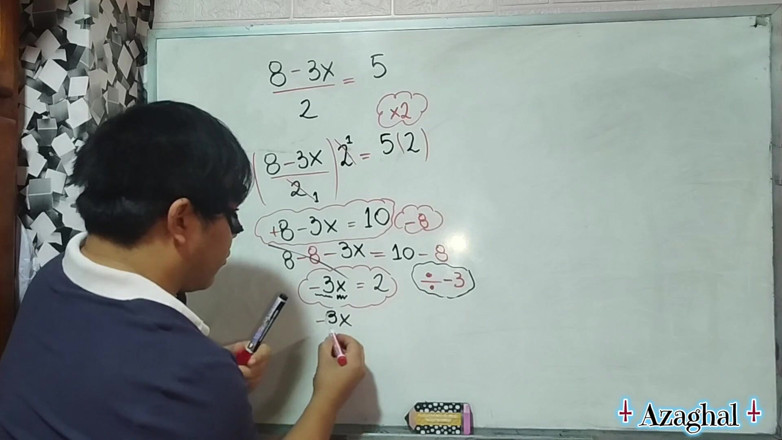 8 - 3x = 5
2
×2
(8 - 3x) 2¹ = 5(2)
2 1
+8 - 3x = 10 -8
8 - 8 - 3x = 10 - 8
-3x = 2 ÷ -3
-3x
Azaghal